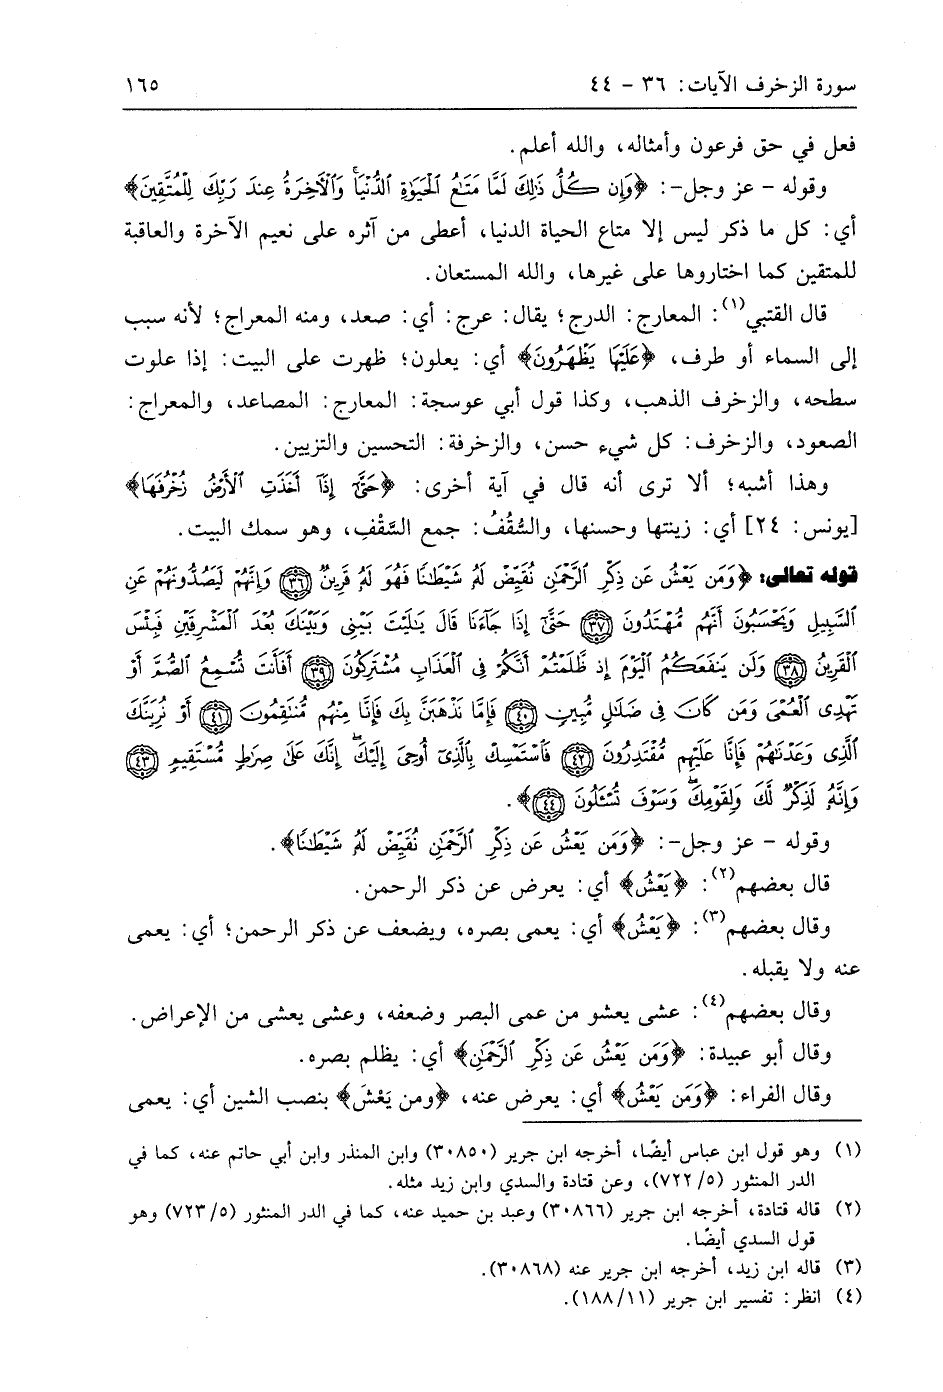 سورة الزخرف الآيات: ٣٦ – ٤٤ ١٦٥
فعل في حق فرعون وأمثاله، والله أعلم.
وقوله – عز وجل–: ﴿وَإِن كُلُّ ذَٰلِكَ لَمَّا مَتَٰعُ الْحَيَوٰةِ الدُّنْيَا ۚ وَالْآخِرَةُ عِندَ رَبِّكَ لِلْمُتَّقِينَ﴾
أي: كل ما ذكر ليس إلا متاع الحياة الدنيا، أعطى من آثره على نعيم الآخرة والعاقبة
للمتقين كما اختاروها على غيرها، والله المستعان.
قال القتبي(١): المعارج: الدرج؛ يقال: عرج: أي: صعد، ومنه المعراج؛ لأنه سبب
إلى السماء أو طرف، ﴿عَلَيْهَا يَظْهَرُونَ﴾ أي: يعلون؛ ظهرت على البيت: إذا علوت
سطحه، والزخرف الذهب، وكذا قول أبي عوسجة: المعارج: المصاعد، والمعراج:
الصعود، والزخرف: كل شيء حسن، والزخرفة: التحسين والتزيين.
وهذا أشبه؛ ألا ترى أنه قال في آية أخرى: ﴿حَتَّىٰٓ إِذَآ أَخَذَتِ الْأَرْضُ زُخْرُفَهَا﴾
[يونس: ٢٤] أي: زينتها وحسنها، والسُّقُفُ: جمع السَّقْفِ، وهو سمك البيت.
قوله تعالى: ﴿وَمَن يَعْشُ عَن ذِكْرِ الرَّحْمَٰنِ نُقَيِّضْ لَهُ شَيْطَٰنًا فَهُوَ لَهُ قَرِينٌ ٣٦ وَإِنَّهُمْ لَيَصُدُّونَهُمْ عَنِ
السَّبِيلِ وَيَحْسَبُونَ أَنَّهُم مُّهْتَدُونَ ٣٧ حَتَّىٰٓ إِذَا جَآءَنَا قَالَ يَٰلَيْتَ بَيْنِي وَبَيْنَكَ بُعْدَ الْمَشْرِقَيْنِ فَبِئْسَ
الْقَرِينُ ٣٨ وَلَن يَنفَعَكُمُ الْيَوْمَ إِذ ظَّلَمْتُمْ أَنَّكُمْ فِي الْعَذَابِ مُشْتَرِكُونَ ٣٩ أَفَأَنتَ تُسْمِعُ الصُّمَّ أَوْ
تَهْدِي الْعُمْيَ وَمَن كَانَ فِي ضَلَٰلٍ مُّبِينٍ ٤٠ فَإِمَّا نَذْهَبَنَّ بِكَ فَإِنَّا مِنْهُم مُّنتَقِمُونَ ٤١ أَوْ نُرِيَنَّكَ
الَّذِي وَعَدْنَٰهُمْ فَإِنَّا عَلَيْهِم مُّقْتَدِرُونَ ٤٢ فَاسْتَمْسِكْ بِالَّذِيٓ أُوحِيَ إِلَيْكَ ۖ إِنَّكَ عَلَىٰ صِرَٰطٍ مُّسْتَقِيمٍ ٤٣
وَإِنَّهُ لَذِكْرٌ لَّكَ وَلِقَوْمِكَ ۖ وَسَوْفَ تُسْـَٔلُونَ ٤٤﴾.
وقوله – عز وجل–: ﴿وَمَن يَعْشُ عَن ذِكْرِ الرَّحْمَٰنِ نُقَيِّضْ لَهُ شَيْطَٰنًا﴾.
قال بعضهم(٢): ﴿يَعْشُ﴾ أي: يعرض عن ذكر الرحمن.
وقال بعضهم(٣): ﴿يَعْشُ﴾ أي: يعمى بصره، ويضعف عن ذكر الرحمن؛ أي: يعمى
عنه ولا يقبله.
وقال بعضهم(٤): عشى يعشو من عمى البصر وضعفه، وعشى يعشى من الإعراض.
وقال أبو عبيدة: ﴿وَمَن يَعْشُ عَن ذِكْرِ الرَّحْمَٰنِ﴾ أي: يظلم بصره.
وقال الفراء: ﴿وَمَن يَعْشُ﴾ أي: يعرض عنه، ﴿ومن يَعْشَ﴾ بنصب الشين أي: يعمى
(١) وهو قول ابن عباس أيضًا، أخرجه ابن جرير (٣٠٨٥٠) وابن المنذر وابن أبي حاتم عنه، كما في
الدر المنثور (٧٢٢/٥)، وعن قتادة والسدي وابن زيد مثله.
(٢) قاله قتادة، أخرجه ابن جرير (٣٠٨٦٦) وعبد بن حميد عنه، كما في الدر المنثور (٧٢٣/٥) وهو
قول السدي أيضًا.
(٣) قاله ابن زيد، أخرجه ابن جرير عنه (٣٠٨٦٨).
(٤) انظر: تفسير ابن جرير (١٨٨/١١).